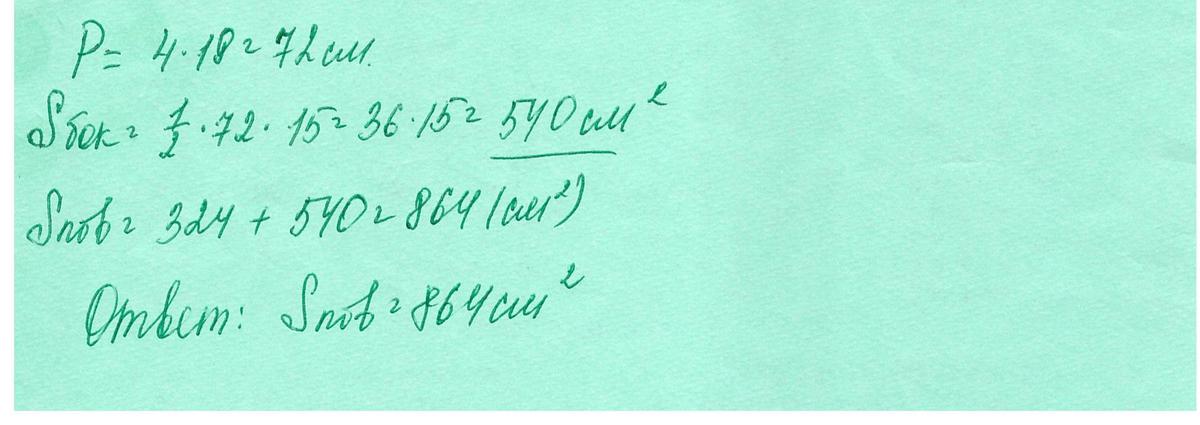 P = 4·18 = 72 см.
Sбок = 1/2 · 72 · 15 = 36·15 = 540 см²
Sпов = 324 + 540 = 864 (см²)
Ответ: Sпов = 864 см²